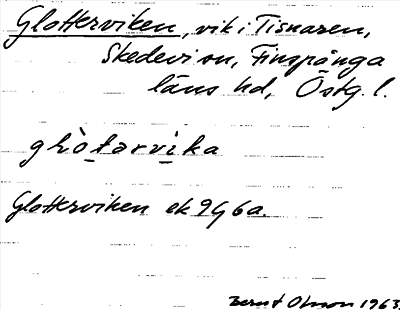 Glotterviken, vik i Tisnaren,
Skedevi sn, Finspånga
läns hd, Östg. l.
glòtərvìka
Glotterviken ek 9G6a.
Bernt Olsson 1963.